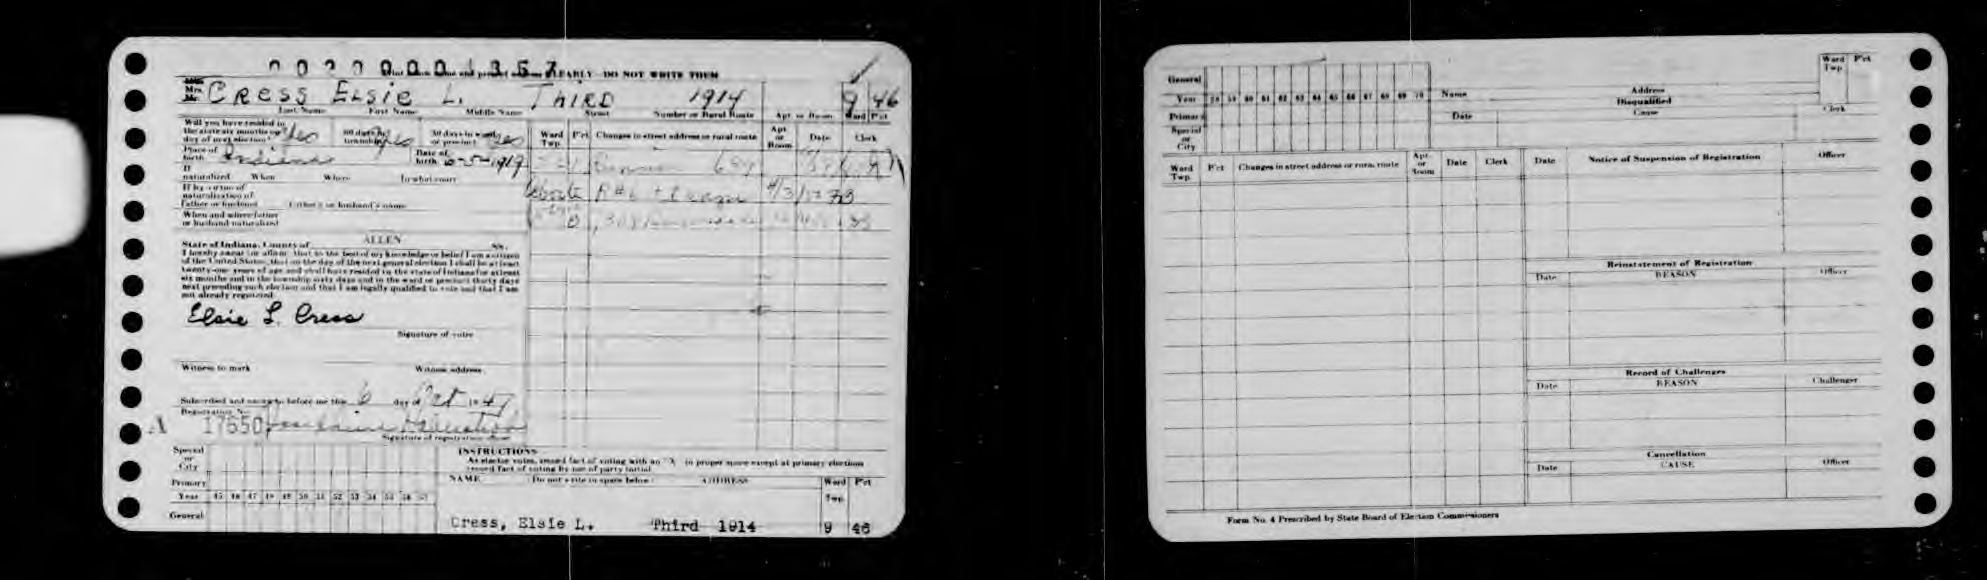 0020000 1357
CLEARLY DO NOT WRITE THEM
Mrs. CRESS ELSIE L. THIRD 1914 9 46
Last Name First Name Middle Name Street Number or Rural Route Apt. or Room Ward Pct
Will you have resided in
the state six months on
day of next election? Yes 60 days in township Yes 30 days in ward or precinct Yes
Ward Twp. Pct Changes in street address or rural route Apt. or Room Date Clerk
Place of birth Indiana Date of birth 1919
If naturalized When Where In what court
R#6
If by virtue of
naturalization of
father or husband Father's or husband's name
When and where father
or husband naturalized
State of Indiana, County of ALLEN SS.
I hereby swear (or affirm) that to the best of my knowledge or belief I am a citizen
of the United States, that on the day of the next general election I shall be at least
twenty-one years of age and shall have resided in the state of Indiana for at least
six months and in the township sixty days and in the ward or precinct thirty days
next preceding such election and that I am legally qualified to vote and that I am
not already registered.
Elsie L. Cress
Signature of voter
Witness to mark Witness address
Subscribed and sworn to before me this 6 day of Oct 1947
Registration No.
A 17650
Signature of registration officer
Special or City
Primary
Year 45 46 47 48 49 50 51 52 53 54 55 56 57
General
INSTRUCTIONS
As elector votes, record fact of voting with an "X" in proper space except at primary election
record fact of voting by use of party initial.
NAME Do not write in space below ADDRESS Ward Twp. Pct
Cress, Elsie L. Third 1914 9 46
General
Year 58 59 60 61 62 63 64 65 66 67 68 69 70
Primary
Special or City
Name Address
Ward Twp. Pct
Disqualified
Date Cause Clerk
Ward Twp. Pct Changes in street address or rural route Apt. or Room Date Clerk
Date Notice of Suspension of Registration Officer
Reinstatement of Registration
Date REASON Officer
Record of Challenges
Date REASON Challenger
Cancellation
Date CAUSE Officer
Form No. 4 Prescribed by State Board of Election Commissioners